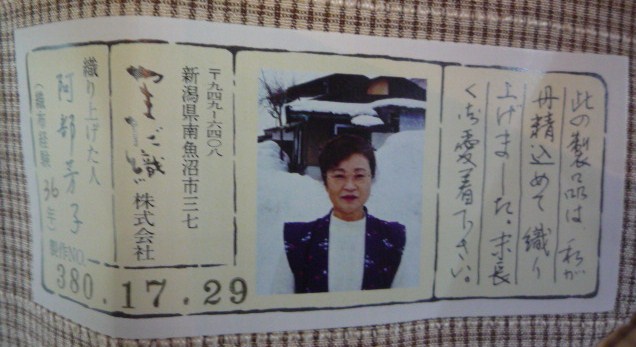 此の製品は、私が
丹精込めて織り
上げました。末長
く御愛着下さい。
〒九四九-六四〇八
新潟県南魚沼市三七
やまだ織株式会社
織り上げた人
阿部芳子
(織布経験36年)
製作NO.
380.17.29